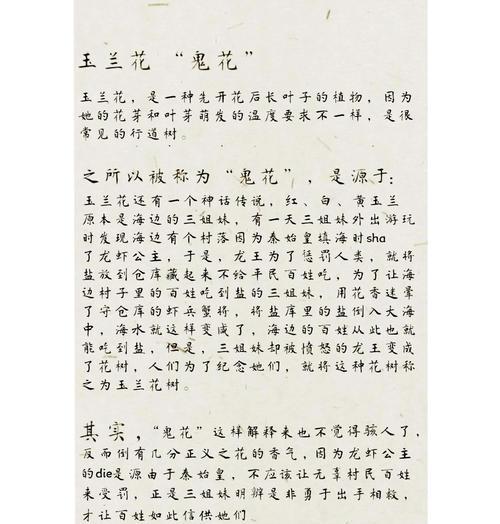 玉兰花“鬼花”
玉兰花，是一种先开花后长叶子的植物，因为
她的花芽和叶芽萌发的温度要求不一样，是很
常见的行道树。
之所以被称为“鬼花”，是源于：
玉兰花还有一个神话传说，红、白、黄玉兰
原本是海边的三姐妹，有一天三姐妹外出游玩
时发现海边有个村落因为秦始皇填海时sha
了龙虾公主，于是，龙王为了惩罚人类，就将
盐放到仓库藏起来不给平民百姓吃，为了让海
边村子里的百姓吃到盐的三姐妹，用花香迷晕
了守仓库的虾兵蟹将，将盐库里的盐倒入大海
中，海水就这样变咸了，海边的百姓从此也就
能吃到盐，但是，三姐妹却被愤怒的龙王变成
了花树，人们为了纪念她们，就将这种花树称
之为玉兰花树。
其实，“鬼花”这样解释来也不觉得骇人了，
反而倒有几分正义之花的香气，因为龙虾公主
的die是源由于秦始皇，不应该让无辜村民百姓
来受罚，正是三姐妹明辨是非勇于出手相救，
才让百姓如此信供她们